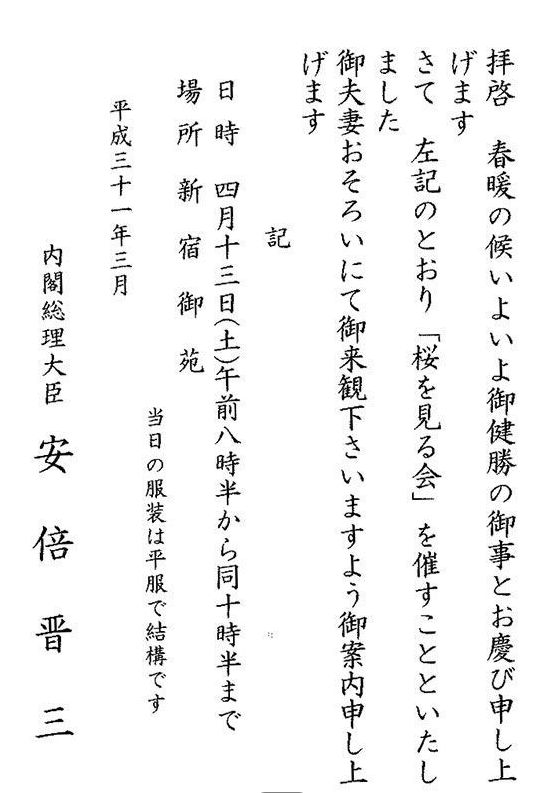 拝啓　春暖の候いよいよ御健勝の御事とお慶び申し上
げます
さて　左記のとおり「桜を見る会」を催すことといたし
ました
御夫妻おそろいにて御来観下さいますよう御案内申し上
げます
記
日　時　四月十三日(土)午前八時半から同十時半まで
場　所　新　宿　御　苑
当日の服装は平服で結構です
平成三十一年三月
内閣総理大臣　安　倍　晋　三